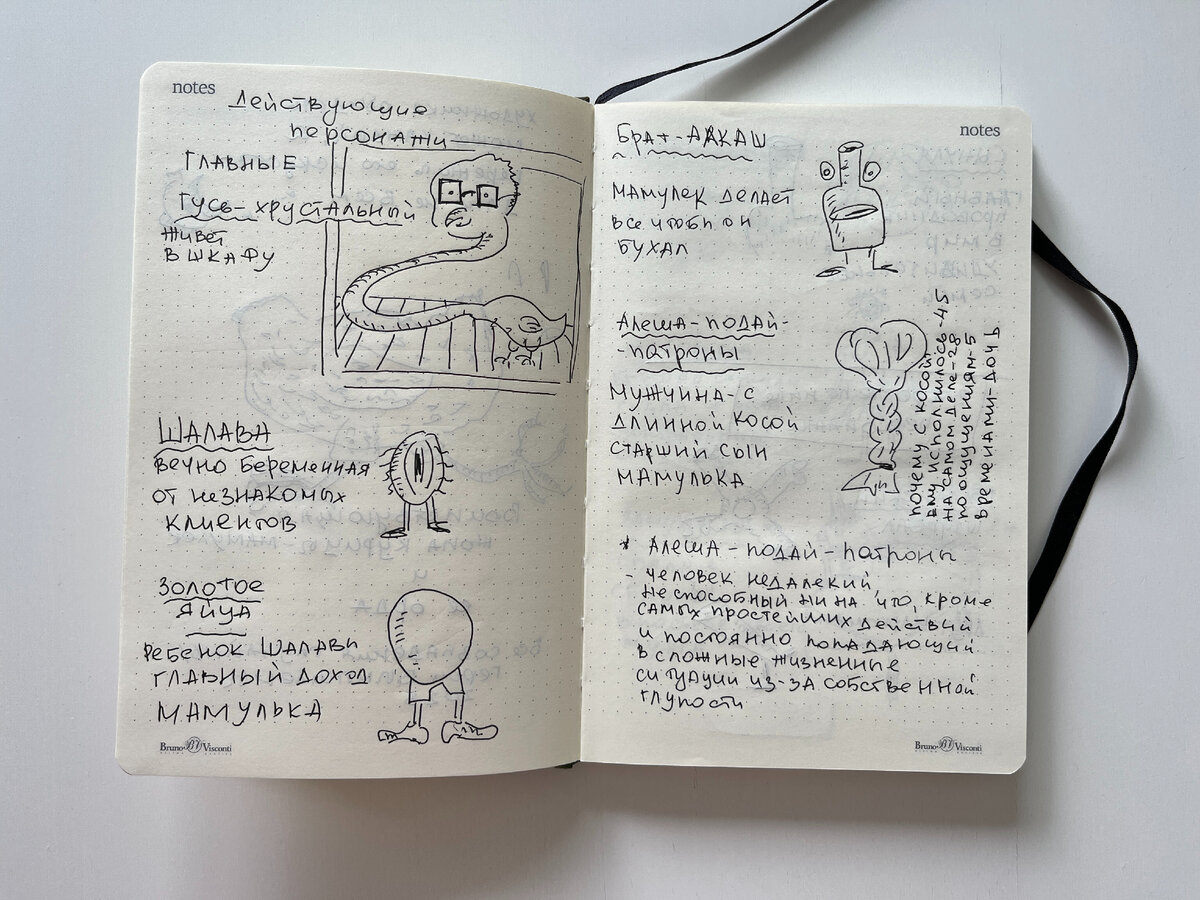 notes
Действующие
персонажи
ГЛАВНЫЕ
Гусь-хрустальный
живет
в шкафу
ШАЛАВА
вечно беременная
от незнакомых
клиентов
Золотое
яйцо
Ребенок шалавы
главный доход
МАМУЛЬКА
Bruno Visconti
notes
Брат-АЛКАШ
Мамулек делает
все чтобы он
бухал
Алеша-подай-
-патроны
Мужчина-с
длинной косой
старший сын
мамулька
почему с косой
ему исполнилось-45
на самом деле-28
по ощущениям-5
временами-дочь
* Алеша-подай-патроны
- человек недалекий,
не способный ни на что, кроме
самых простейших действий
и постоянно попадающий
в сложные жизненные
ситуации из-за собственной
глупости
Bruno Visconti